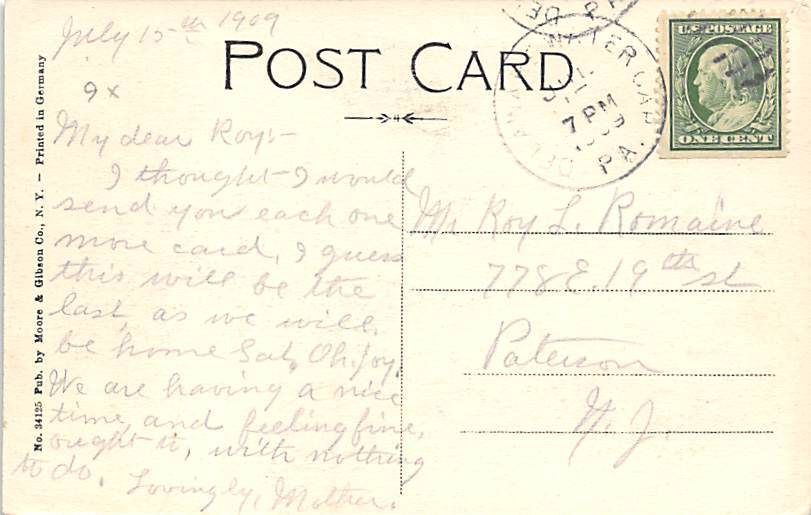 July 15th 1909
9x
My dear Roy:-
I thought I would
send you each one
more card, I guess
this will be the
last, as we will
be home Sat, Oh, joy.
We are having a nice
time, and feeling fine,
ought to, with nothing
to do.
Lovingly, Mother.
POST CARD
DELAWARE WATER GAP
7 PM
PA.
U.S. POSTAGE
ONE CENT
Mr Roy L. Romaine
778 E. 19th st
Paterson
N. J.
No. 34125 Pub. by Moore & Gibson Co., N. Y. – Printed in Germany